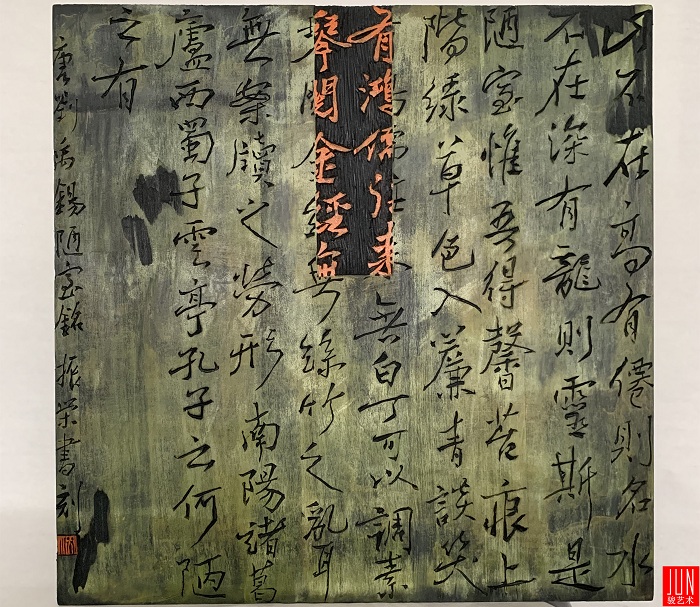 山不在高有僊則名水
不在深有龍則靈斯是
陋室惟吾得馨苔痕上
階綠草色入簾青談笑
有鴻儒往來無白丁可以調素
琴閱金經無絲竹之亂耳
無案牘之勞形南陽諸葛
廬西蜀子雲亭孔子云何陋
之有
唐劉禹錫陋室銘振榮書刻
JUN
骏艺术